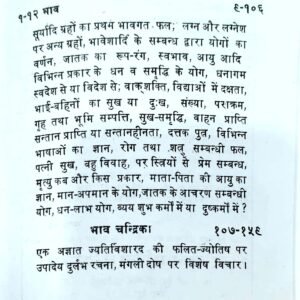 १-१२ भाव ९-१०६
सूर्यादि ग्रहों का प्रथम भावगत फल; लग्न और लग्नेश
पर अन्य ग्रहों, भावेशादि के सम्बन्ध द्वारा योगों का
वर्णन, जातक का रूप-रंग, स्वभाव, आयु आदि
विभिन्न प्रकार के धन व समृद्धि के योग, धनागम
स्वदेश से या विदेश से; वाक्शक्ति, विद्याओं में दक्षता,
भाई-बहिनों का सुख या दुःख, संख्या, पराक्रम,
गृह तथा भूमि सम्पत्ति, सुख-समृद्धि, वाहन प्राप्ति
सन्तान प्राप्ति या सन्तानहीनता, दत्तक पुत्र, विभिन्न
भाषाओं का ज्ञान, रोग तथा शत्रु सम्बन्धी फल,
पत्नी सुख, बहु विवाह, पर स्त्रियों से प्रेम सम्बन्ध,
मृत्यु कब और किस प्रकार, माता-पिता की आयु का
ज्ञान, मान-अपमान के योग,जातक के आचरण सम्बंधी
योग, धन-लाभ योग, व्यय शुभ कर्मों में या दुष्कर्मों में ?
भाव चन्द्रिका १०७-१५९
एक अज्ञात ज्योतिविशारद की फलित-ज्योतिष पर
उपादेय दुर्लभ रचना, मंगली दोष पर विशेष विचार।